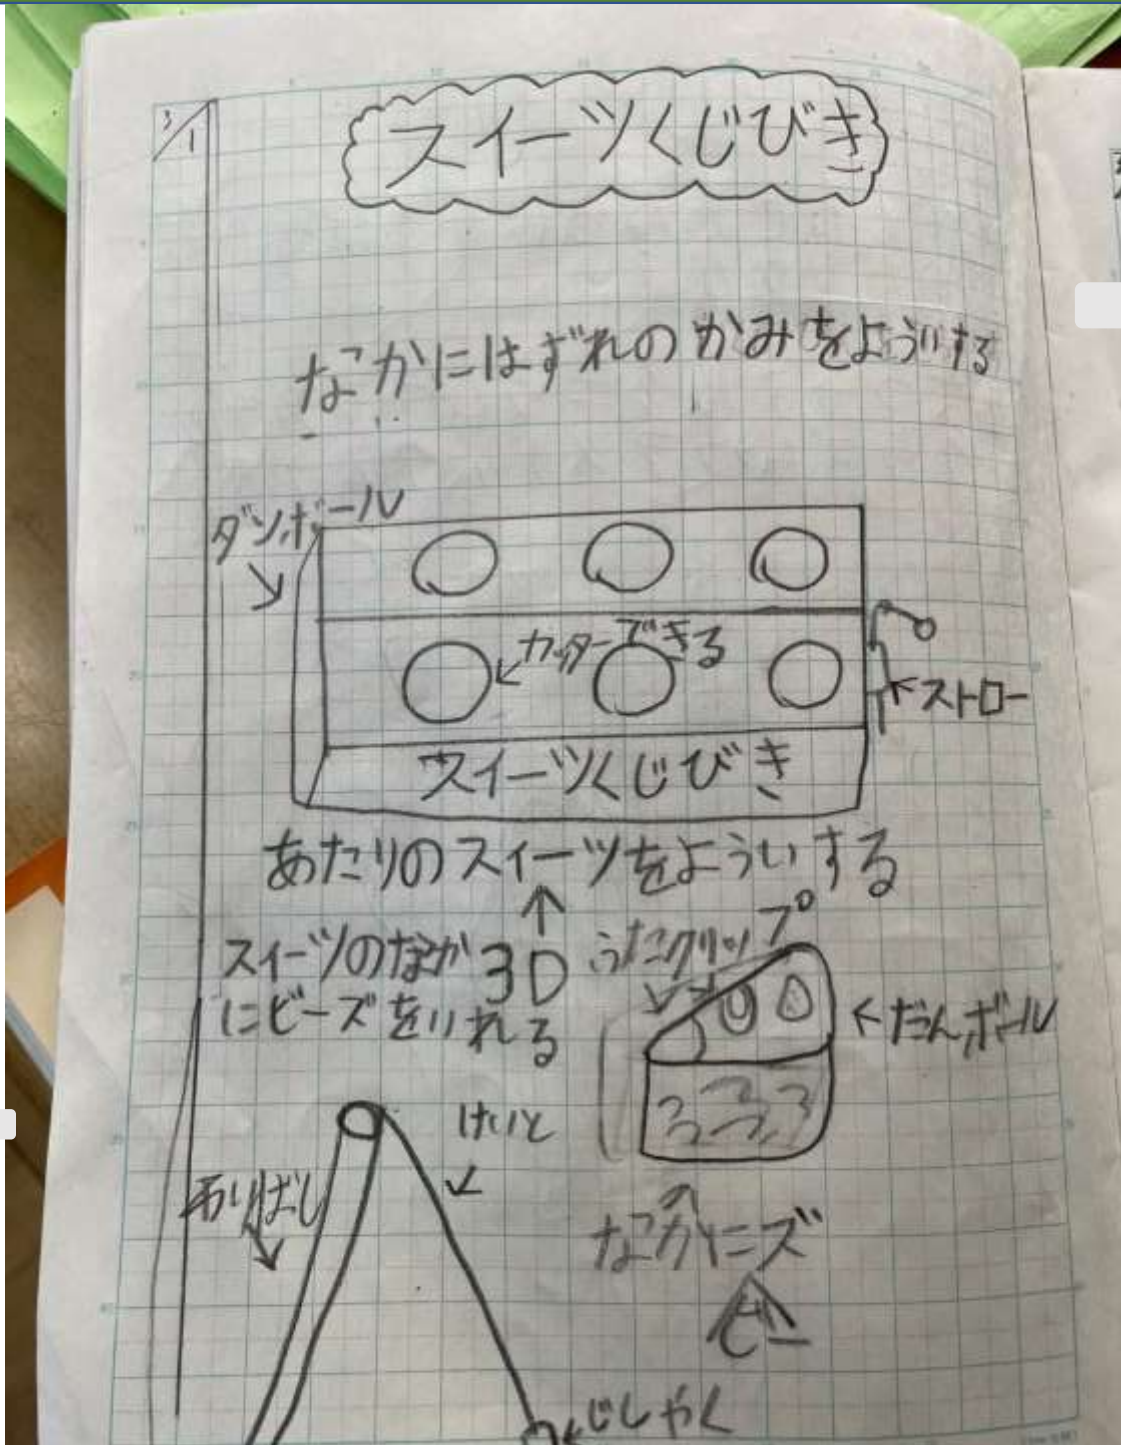 3/1
スイーツくじびき
なかにはずれのかみをよういする
ダンボール
カッターできる
ストロー
スイーツくじびき
あたりのスイーツをよういする
スイーツのなか
にビーズをいれる
3D
クリップ
だんボール
けいと
わりばし
なかにビーズ
じしゃく